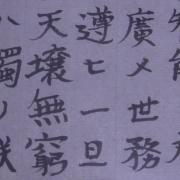 廣メ世務
遵ヒ一旦
天壤無窮
ハ獨リ朕